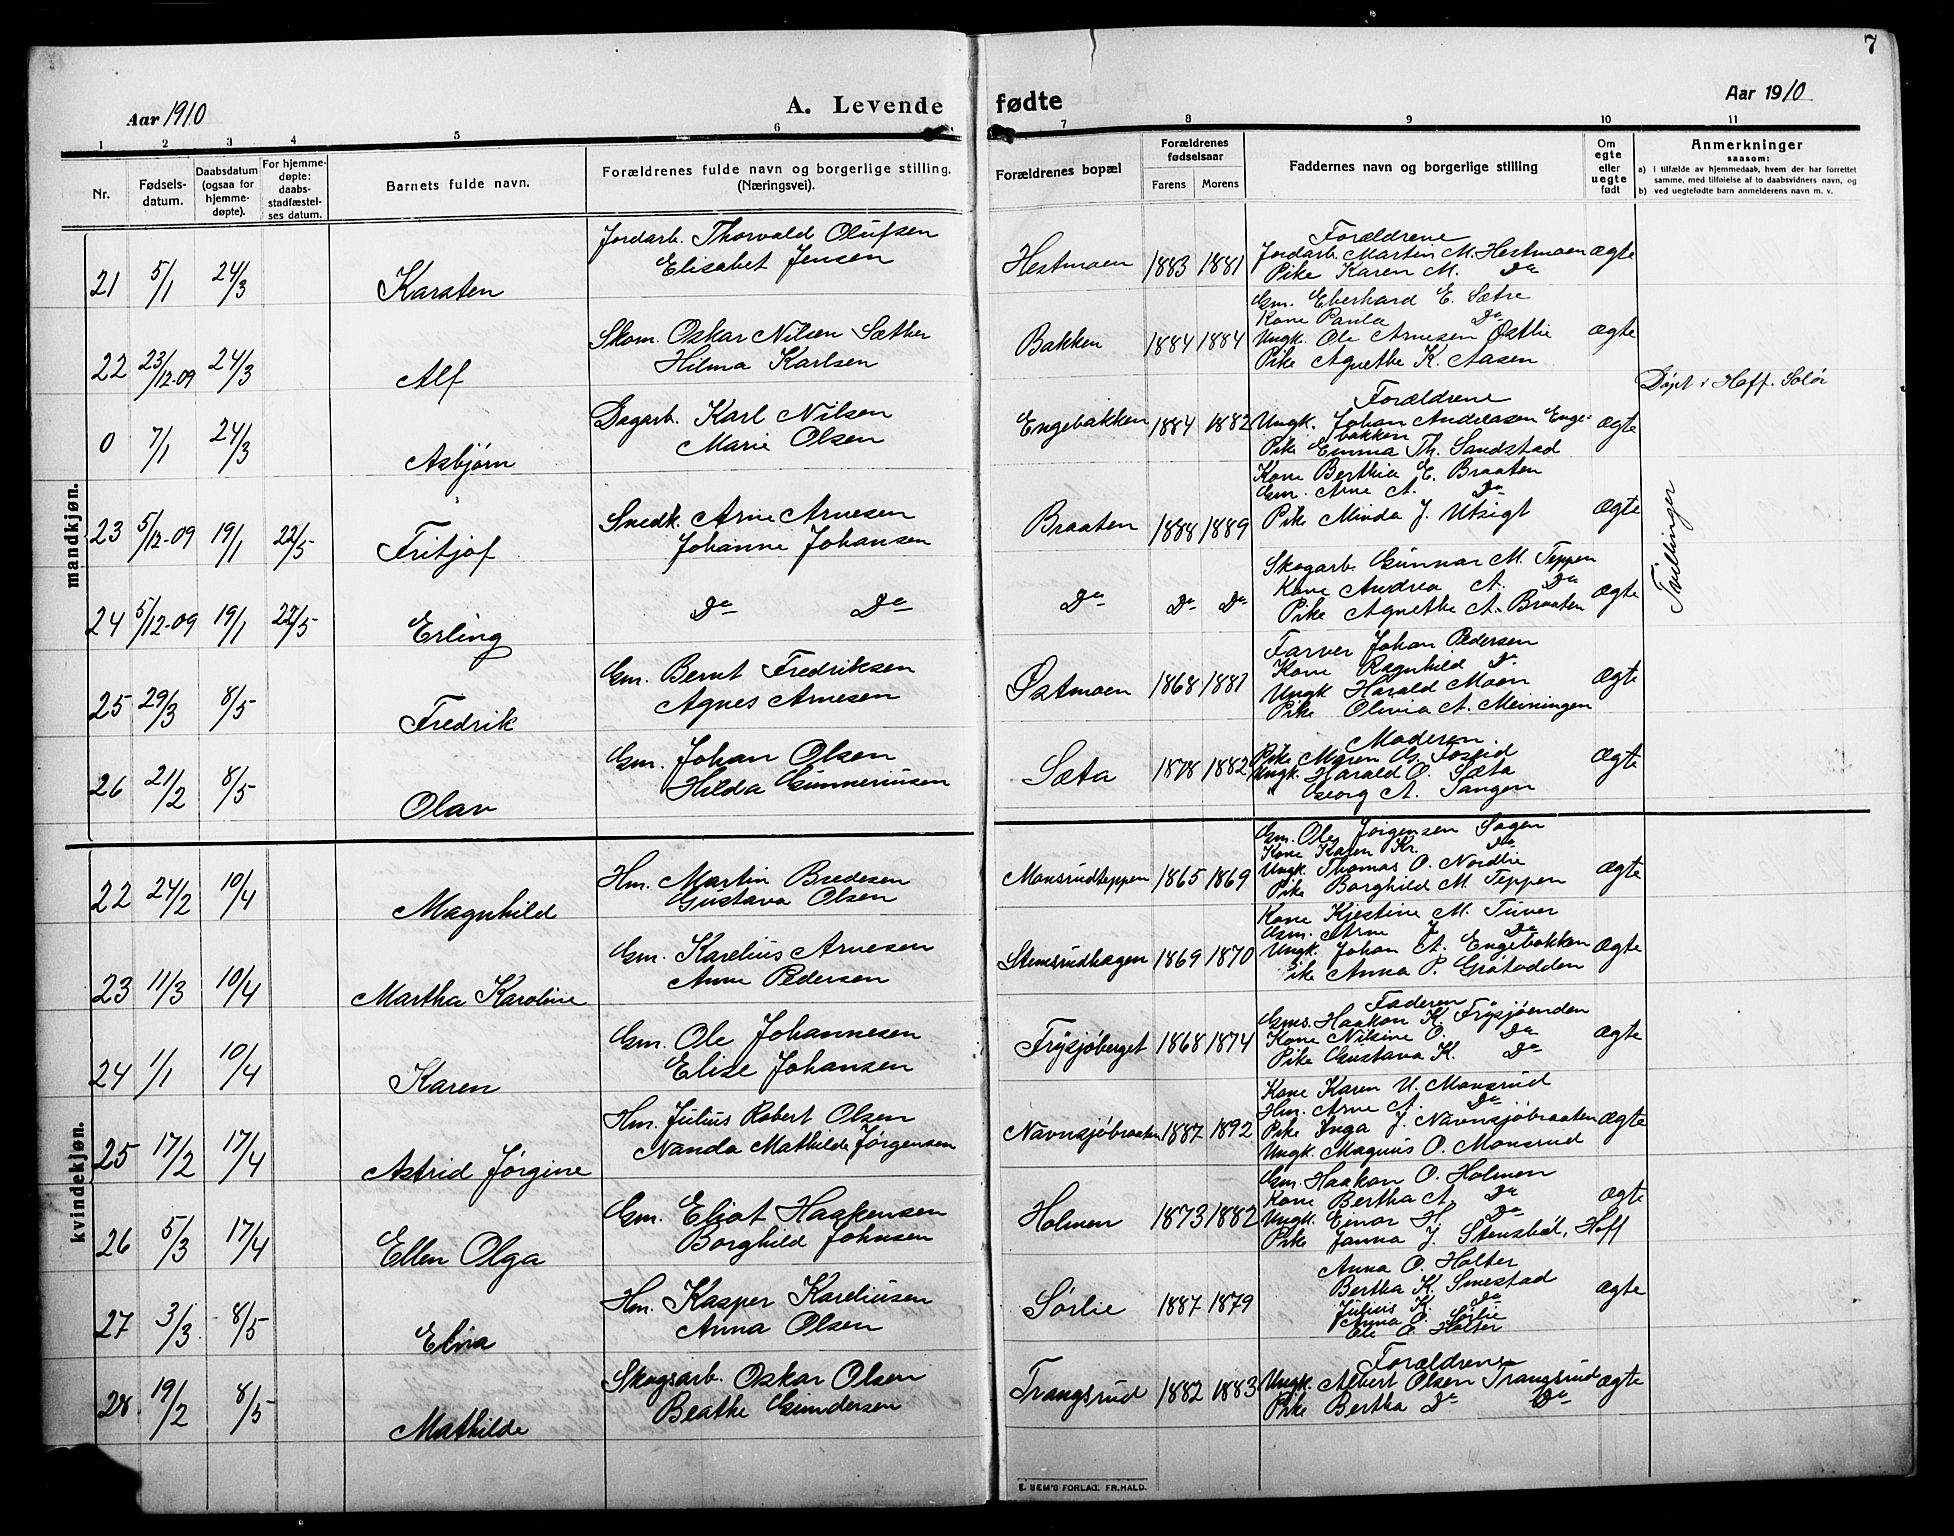 7
Aar 1910
A. Levende fødte
Aar 1910
1 2 3 4 5 6 7 8 9 10 11
Nr.
Fødsels-
datum.
Daabsdatum
(ogsaa for
hjemme-
døpte).
For hjemme-
døpte:
daabs-
stadfæstel-
ses datum.
Barnets fulde navn.
Forældrenes fulde navn og borgerlige stilling.
(Næringsvei).
Forældrenes bopæl
Forældrenes
fødselsaar
Farens Morens
Faddernes navn og borgerlige stilling
Om
egte
eller
uegte
født
Anmerkninger
saasom:
a) i tilfælde av hjemmedaab, hvem der har forrettet
samme, med tilføielse af to daabsvidners navn, og
b) ved uegtefødte barn anmelderens navn m. v.
mandkjøn.
21 5/1 24/3 Karsten
Jordarb. Thorvald Olufsen
Elisabet Jensen
Hestmoen 1883 1881
Forældrene
Jordarb. Martin M. Hestmoen
Pike Karen M. Do
Ægte
22 23/12-09 24/3 Alf
Skom. Oskar Nilsen Sæther
Hilma Karlsen
Bakken 1884 1884
Gm. Eberhard E. Sætre
Kone Paula Do
Ungk. Ole Arnesen Østlie
Pike Agnethe K. Aasen
Ægte
Døpt i Hoff. Solør
0 7/1 24/3 Asbjørn
Dagarb. Karl Nilsen
Marie Olsen
Engebakken 1884 1882
Forældrene
Ungk. Johan Andreasen Enge-
bakken
Pike Emma Th. Sandstad
Ægte
23 5/12-09 19/1 22/5 Fritjof
Snedk. Arne Arnesen
Johanne Johansen
Braaten 1888 1889
Kone Berthia E. Braaten
Gm. Arne A. Do
Pike Minda J. Utsigt
Ægte
Tvillinger
24 5/12-09 19/1 22/5 Erling
Do Do
Do Do Do
Skogarb. Gunnar M. Teppen
Kone Andrea A. Do
Pike Agnethe A. Braaten
Ægte
25 29/3 8/5 Fredrik
Gm. Bernt Fredriksen
Agnes Arnesen
Østmoen 1868 1881
Farver Johan Pedersen
Kone Ragnhild Do
Ungk Harald Moen
Pike Olivia A. Meiningen
Ægte
26 21/2 8/5 Olav
Gm. Johan Olsen
Hilda Gunneriusen
Sæta 1878 1882
Moderen.
Pike Maren G. Fosseid
Ungk. Harald O. Sæta
" Georg A. Tangen
Ægte
kvindekjøn.
22 24/2 10/4 Magnhild
Hm. Martin Bredesen
Gustava Olsen
Monsrudteppen 1865 1869
Gm. Ole Jørgensen Sagen
Kone Karen Kr. Do
Ungk. Thomas O. Nordlie
Pike Borghild M. Teppen
Ægte
23 11/3 10/4 Martha Karoline
Gm. Karelius Arnesen
Anne Pedersen
Stemsrudhagen 1869 1870
Kone Kjestine M. Tuver
Gm. Arne J. Do
Ungk. Johan A. Engebakken
Pike Anna P. Grøtodden
Ægte
24 1/1 10/4 Karen
Gm. Ole Johannesen
Elise Johansen
Frysjøberget 1868 1874
Faderen
Gms. Haakon K. Frysjøenden
Kone Nilsine O. Do
Pike Gustava K. Do
Ægte
25 17/2 17/4 Astrid Jørgine
Hm. Julius Robert Olsen
Nanda Mathilde Jørgensen
Navnsjøbraaten 1887 1892
Kone Karen U. Monsrud
Hm. Arne A. Do
Pike Inga J. Navnsjøbraaten
Ungk. Magnus O. Monsrud
Ægte
26 5/3 17/4 Ellen Olga
Gm. Eliot Haagensen
Borghild Johnsen
Holmen 1873 1882
Gm. Haakon O. Holmen
Kone Bertha A. Do
Ungk. Einar H. Do
Pike Janna J. Stensbøl, Hoff
Ægte
27 3/3 8/5 Elvia
Hm. Kasper Kareliusen
Anna Olsen
Sørlie 1887 1879
Anna O. Holter
Bertha K. Smestad
Julius K. Do
Anna O. Sørlie
Ole O. Holter
Ægte
28 19/2 8/5 Mathilde
Skogsarb. Oskar Olsen
Beathe Gundersen
Trangsrud 1882 1883
Forældrene
Ungk. Albert Olsen Trangsrud
Pike Bertha Do Do
Ægte
E. SEM'S FORLAG, FR.HALD.